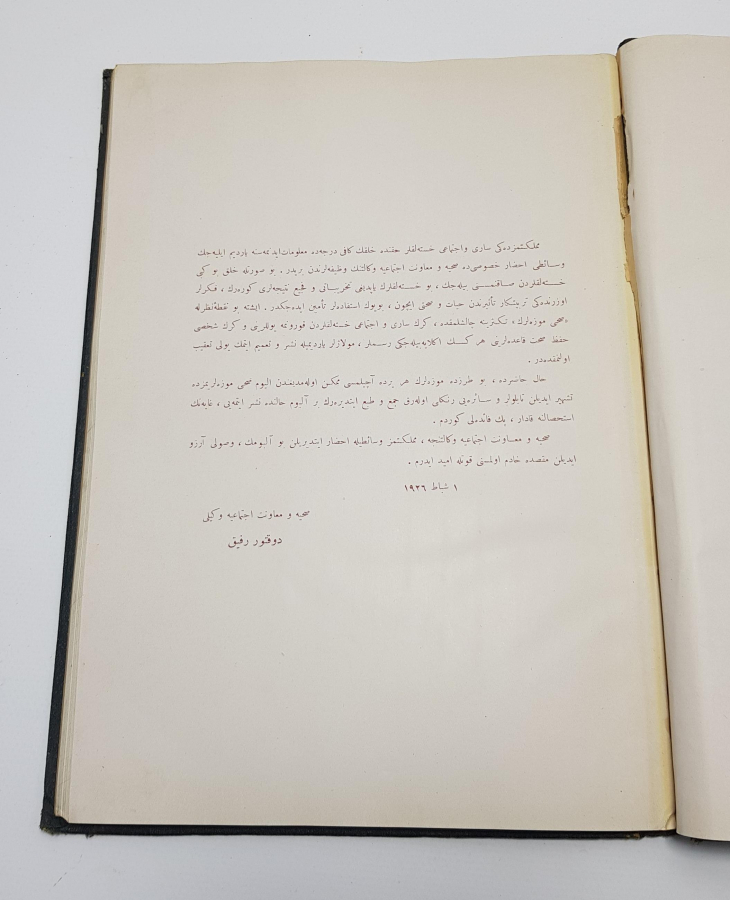 مملكتمزده‌كی ساری و اجتماعی خسته‌لقلر حقنده خلقك كافی درجه‌ده معلومات ایدنمه‌سنه یاردیم ایلیه‌جك
وسائطی احضار خصوصی‌ده صحیه و معاونت اجتماعیه وكالتنك وظیفه‌لرندن بریدر . بو صورتله خلق بو كبی
خسته‌لقلردن صاقنمسنی بیله‌جك ، بو خسته‌لقلرك یاپدیغی تخریباتی و فجیع نتیجه‌لری كوره‌رك ، فكرلر
اوزرنده‌كی تأثیرندن حیات و صحتی ایچون ، بویوك استفاده‌لر تأمین ایده‌جكدر . ایشته بو نقطۀ نظرله
صحی موزه‌لرك ، تكثرینه چالشلمقده ، كرك ساری و اجتماعی خسته‌لقلردن قورونمه یوللرینی و كرك شخصی
حفظ صحت قاعده‌لرینی هر كسك اكلایه‌بیله‌جكی رسملر ، مولاژلر یاردیمیله نشر و تعمیم ایتمك یولی تعقیب
اولنمقده‌در .
حال حاضرده ، بو طرزده موزه‌لرك هر یرده آچیلمسی ممكن اوله‌مدیغندن البوم صحی موزه‌لریمزده
تشهیر ایدیلن تابلولر و سائره‌یی رنكلی اوله‌رق جمع و طبع ایتدیره‌رك بر آلبوم حالنده نشر ایتمه‌یی ، غایه‌نك
استحصالنه قادار ، پك فائده‌لی كوردم .
صحیه و معاونت اجتماعیه وكالتنجه ، مملكتمز وسائطیله احضار ایتدیریلن بو آلبومك ، وصولی آرزو
ایدیلن مقصده خادم اولمسنی قوتله امید ایدرم .
١ شباط ١٩٢٦
صحیه و معاونت اجتماعیه وكیلی
دوقتور رفیق